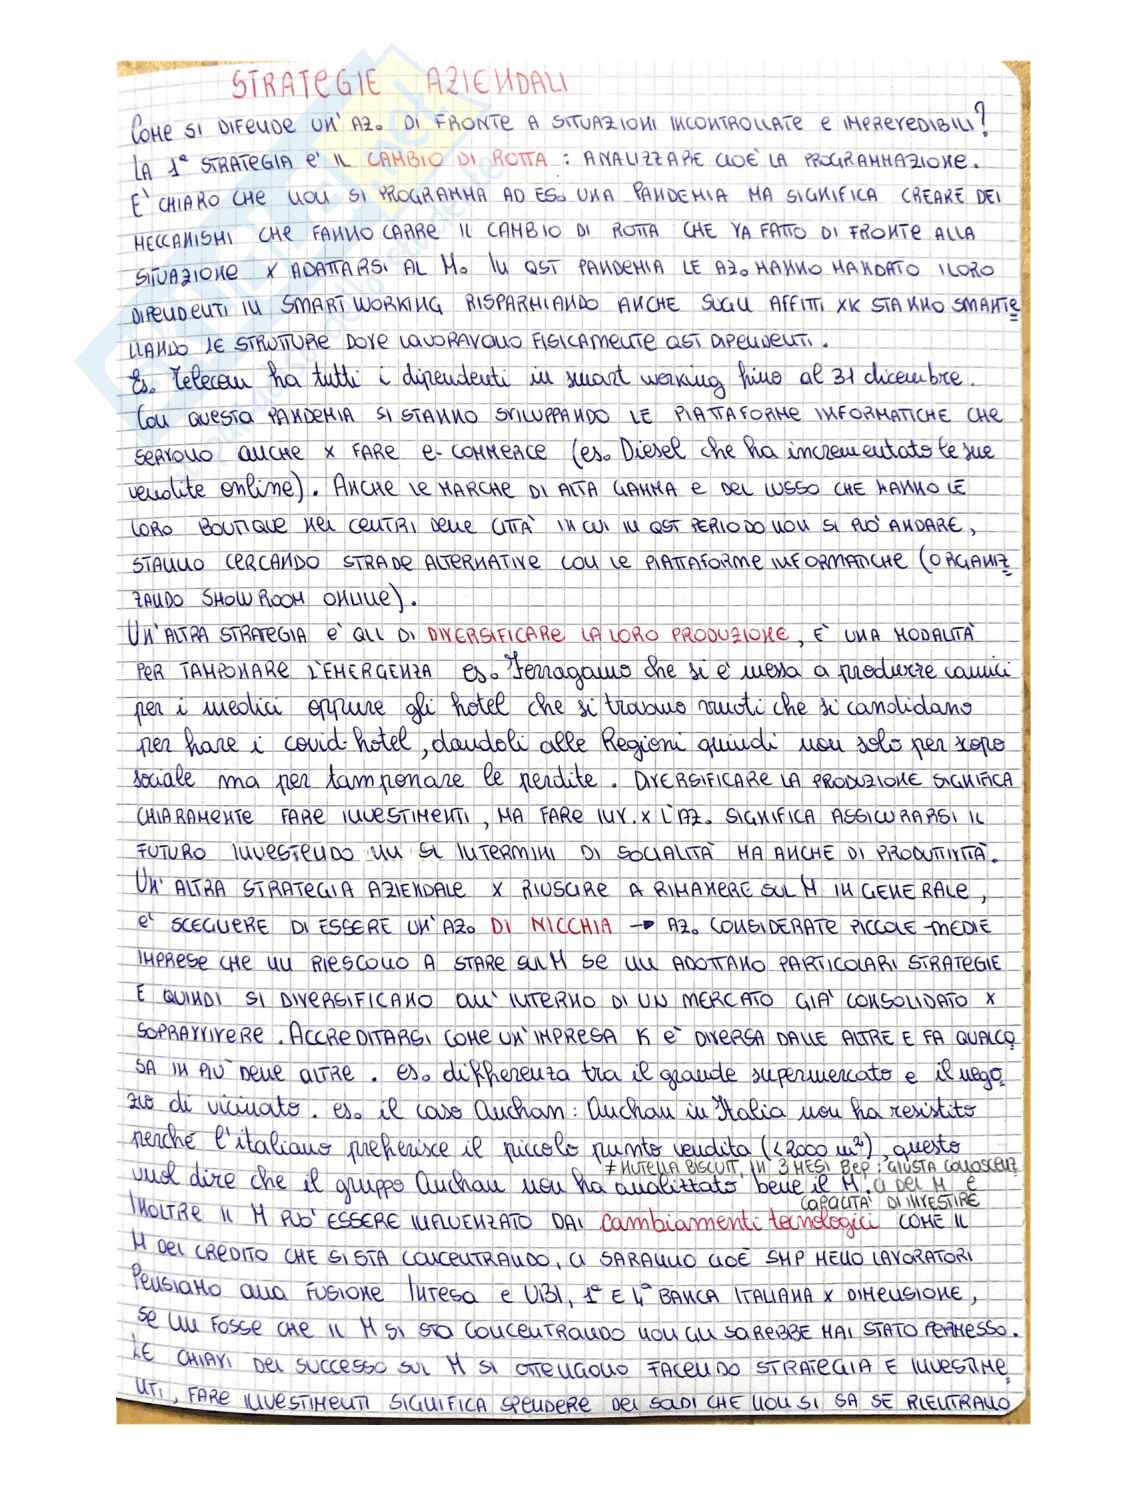 STRATEGIE AZIENDALI
COME SI DIFENDE UN'AZ. DI FRONTE A SITUAZIONI INCONTROLLATE E IMPREVEDIBILI?
LA 1ª STRATEGIA E' IL CAMBIO DI ROTTA : ANALIZZARE CIOÈ LA PROGRAMMAZIONE.
E' CHIARO CHE NON SI PROGRAMMA AD ES. UNA PANDEMIA MA SIGNIFICA CREARE DEI
MECCANISMI CHE FANNO CAPIRE IL CAMBIO DI ROTTA CHE VA FATTO DI FRONTE ALLA
SITUAZIONE X ADATTARSI AL M. IN QST PANDEMIA LE AZ. HANNO MANDATO I LORO
DIPENDENTI IN SMART WORKING RISPARMIANDO ANCHE SUGLI AFFITTI XK STANNO SMANTE
LLANDO LE STRUTTURE DOVE LAVORAVANO FISICAMENTE QST DIPENDENTI.
Es. Telecom ha tutti i dipendenti in smart working fino al 31 dicembre.
CON QUESTA PANDEMIA SI STANNO SVILUPPANDO LE PIATTAFORME INFORMATICHE CHE
SERVONO ANCHE X FARE E-COMMERCE (es. Diesel che ha incrementato le sue
vendite online). ANCHE LE MARCHE DI ALTA GAMMA E DEL LUSSO CHE HANNO LE
LORO BOUTIQUE NEI CENTRI DELLE CITTÀ IN CUI IN QST PERIODO NON SI PUÒ ANDARE,
STANNO CERCANDO STRADE ALTERNATIVE CON LE PIATTAFORME INFORMATICHE (ORGANIZ
ZANDO SHOWROOM ONLINE).
UN'ALTRA STRATEGIA E' QLL DI DIVERSIFICARE LA LORO PRODUZIONE, E' UNA MODALITÀ
PER TAMPONARE L'EMERGENZA es. Ferragamo che si è messa a produrre camici
per i medici oppure gli hotel che si trovano vuoti che si candidano
per fare i covid-hotel, dandoli alle Regioni quindi non solo per scopo
sociale ma per tamponare le perdite. DIVERSIFICARE LA PRODUZIONE SIGNIFICA
CHIARAMENTE FARE INVESTIMENTI, MA FARE INV. X L'AZ. SIGNIFICA ASSICURARSI IL
FUTURO INVESTENDO NN SL IN TERMINI DI SOCIALITÀ MA ANCHE DI PRODUTTIVITÀ.
UN'ALTRA STRATEGIA AZIENDALE X RIUSCIRE A RIMANERE SUL M IN GENERALE,
E' SCEGLIERE DI ESSERE UN'AZ. DI NICCHIA → AZ. CONSIDERATE PICCOLE-MEDIE
IMPRESE CHE NN RIESCONO A STARE SUL M SE NN ADOTTANO PARTICOLARI STRATEGIE
E QUINDI SI DIVERSIFICANO ALL'INTERNO DI UN MERCATO GIÀ CONSOLIDATO X
SOPRAVVIVERE. ACCREDITARSI COME UN'IMPRESA K E' DIVERSA DALLE ALTRE E FA QUALCO
SA IN PIÙ DELLE ALTRE. es. differenza tra il grande supermercato e il nego
zio di vicinato. es. il caso Auchan: Auchan in Italia non ha resistito
perché l'italiano preferisce il piccolo punto vendita (<2000 m²), questo
≠ NUTELLA BISCUIT, IN 3 MESI BEP : GIUSTA CONOSCENZ
vuol dire che il gruppo Auchan non ha analizzato bene il M. A DEL M E
CAPACITÀ DI INVESTIRE
INOLTRE IL M PUÒ ESSERE INFLUENZATO DAI cambiamenti tecnologici COME IL
M DEL CREDITO CHE SI STA CONCENTRANDO, CI SARANNO CIOÈ SMP MENO LAVORATORI
PENSIAMO ALLA FUSIONE INTESA E UBI, 1ª E 4ª BANCA ITALIANA X DIMENSIONE,
SE NN FOSSE CHE IL M SI STA CONCENTRANDO NON GLI SAREBBE MAI STATO PERMESSO.
LE CHIAVI DEL SUCCESSO SUL M SI OTTENGONO FACENDO STRATEGIA E INVESTIME
NTI, FARE INVESTIMENTI SIGNIFICA SPENDERE DEI SOLDI CHE NON SI SA SE RIENTRANO